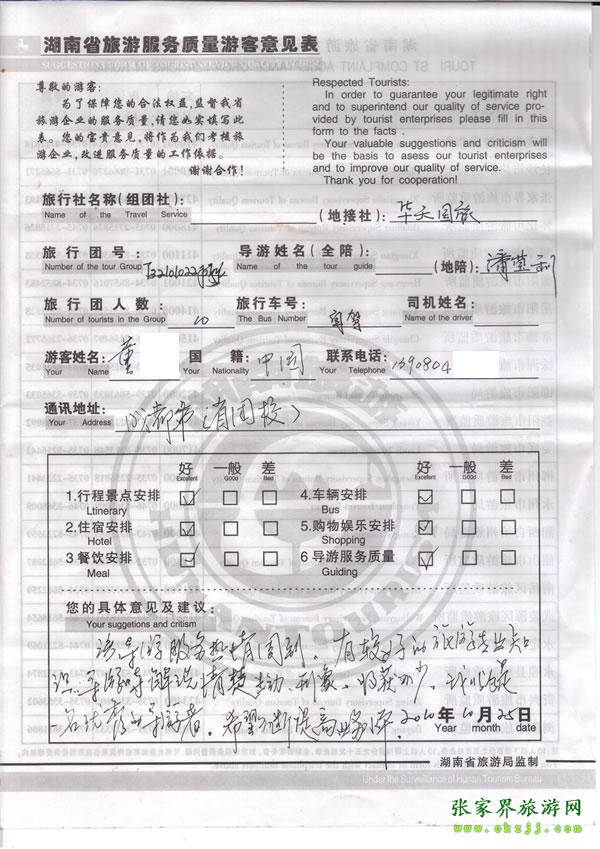 湖南省旅游服务质量游客意见表
尊敬的游客：
为了保障您的合法权益,监督我省旅游企业的服务质量,请您如实填写此表。您的宝贵意见,将作为我们考核旅游企业,改进服务质量的工作依据。
谢谢合作！
Respected Tourists:
In order to guarantee your legitimate right
and to superintend our quality of service pro-
vided by tourist enterprises please fill in this
form to the facts .
Your valuable suggestions and criticism will
be the basis to asess our tourist enterprises
and to improve our quality of service.
Thank you for cooperation!
旅行社名称(组团社): (地接社): 华天国旅
Name of the Travel Service
旅行团号: 导游姓名(全陪): (地陪):
Number of the tour Group Name of the tour guide
旅行团人数: 10 旅行车号: 司机姓名:
Number of tourists in the Group The Bus Number Name of the driver
游客姓名: 董 国籍: 中国 联系电话: 1390804
Your Name Your Nationality Your Telephone
通讯地址: 成都市
Your Address
好 一般 差 好 一般 差
Excellent Good Bad Excellent Good Bad
1.行程景点安排 4.车辆安排
Ltinerary Bus
2.住宿安排 5.购物娱乐安排
Hotel Shopping
3 餐饮安排 6 导游服务质量
Meal Guiding
您的具体意见及建议:
Your suggetions and critism
该导游服务热情周到，有较好的旅游专业知
识，导游讲解清楚生动、形象，收获不少，
一名优秀的导游者。希望不断提高业务水平。2010年10月25日
Year month date
湖南省旅游局监制
Under the Surveillance of Hunan Tourism Bureau
张家界旅游网
www.okzjj.com